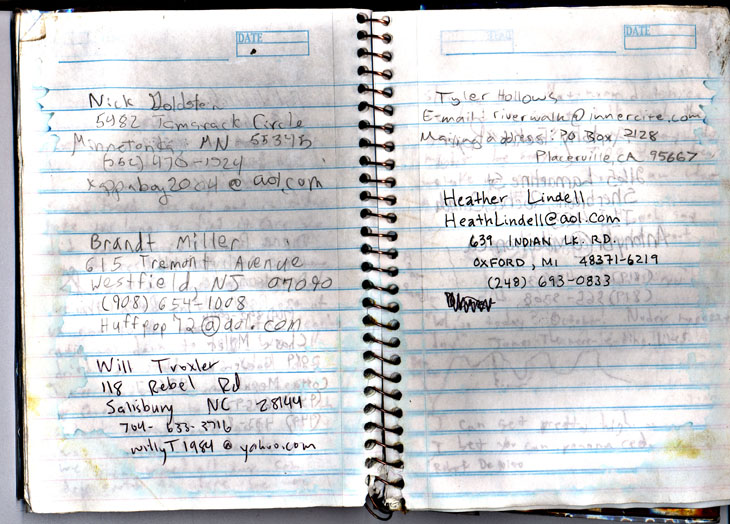 DATE
Nick
5482 Tamarack Circle
Minnetonka MN 55345
@ aol.com
Brandt Miller
615 Tremont Avenue
Westfield, NJ 07090
(908) 654-1008
Huffpop72@aol.com
Will Troxler
118 Rebel Rd
Salisbury NC 28144
704- 633-3716
willyT1984@yahoo.com
DATE
Tyler Hollows
E-mail: riverwalk@innercite.com
Mailing address: PO Box 2128
Placerville, CA 95667
Heather Lindell
HeathLindell@aol.com
639 INDIAN LK. RD.
OXFORD, MI 48371-6219
(248) 693-0833
can get pretty high